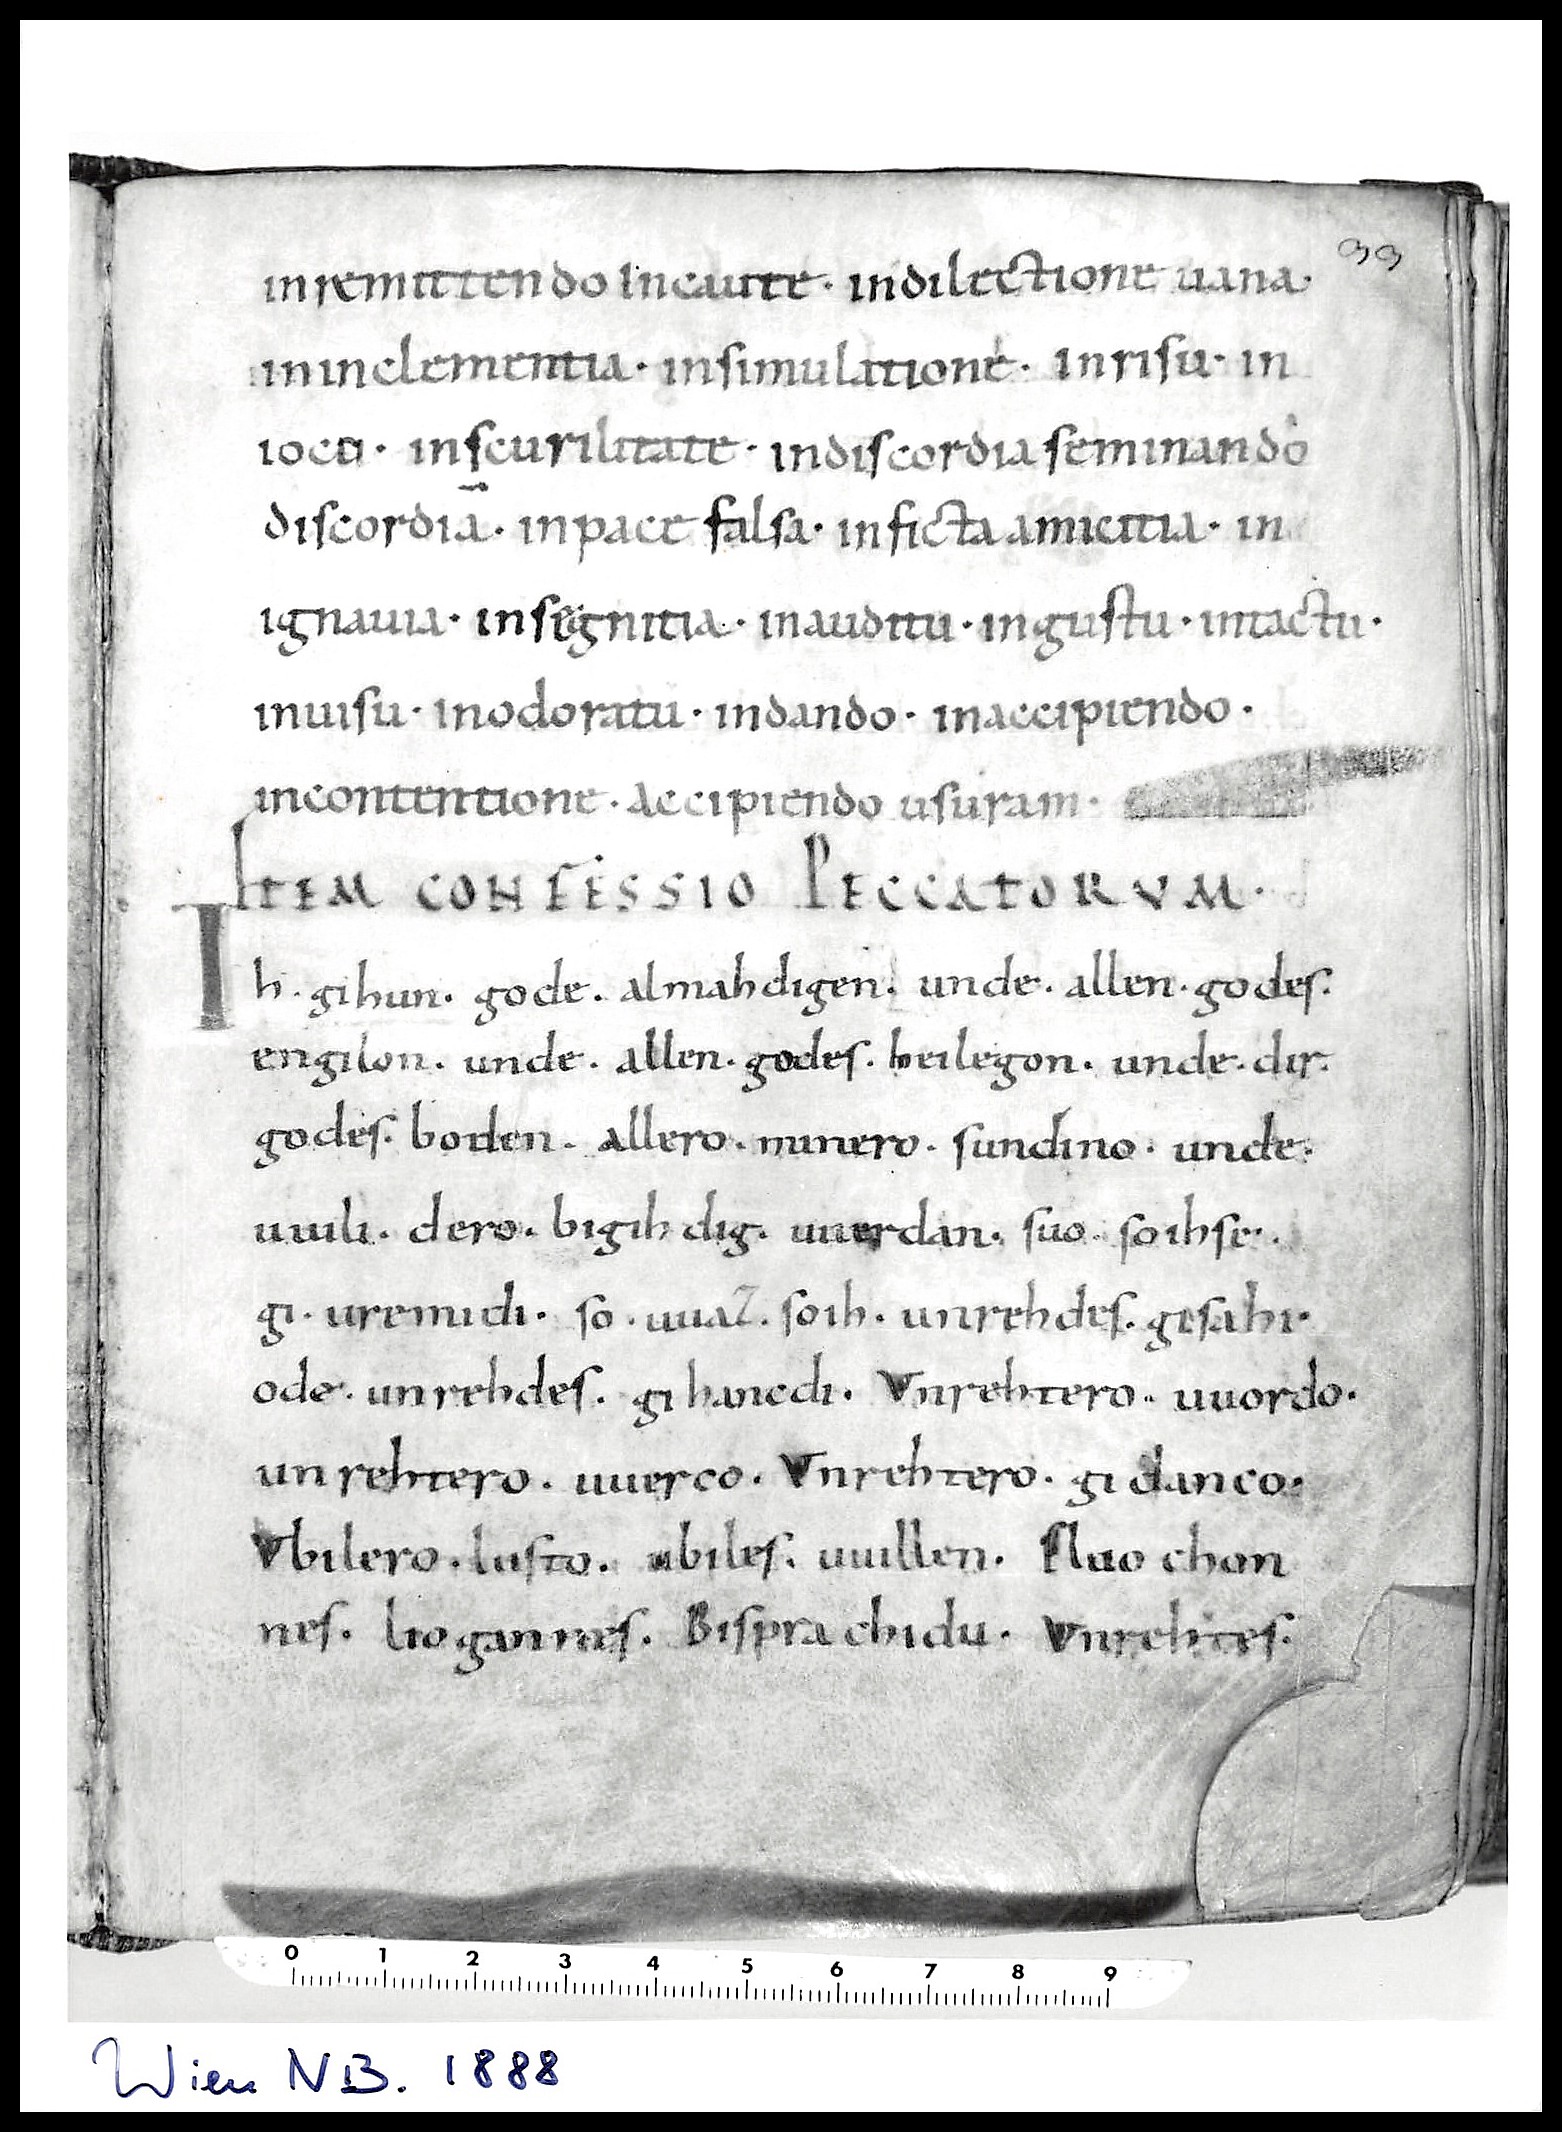 33
inremittendo incaute· indilectione uana·
ininclementia· insimulatione· inrisu· in
ioco· inscurilitate· indiscordia seminando
discordiā· inpace falsa· inficta amicitia· in
ignauia· insegnitia· inauditu· ingustu· intactu·
inuisu· inodoratu· indando· inaccipiendo·
incontentione· accipiendo usuram·
ITEM CONFESSIO PECCATORVM·
Ih· gihun· gode· almahdigen· unde· allen· godes·
engilon· unde· allen· godes· heilegon· unde· dir·
godes· boden· allero· minero· sundino· unde·
uuili· dero· bigihdig· uuerdan· suo· soihse·
gi· uremidi· so· uuaz· soih· unrehdes· gesahi·
ode· unrehdes· gihancdi· Vnrehtero· uuordo·
unrehtero· uuerco· Vnrehtero· gidanco·
Vbilero· lusto· ubiles· uuillen· Fluochon
nes· liogannes· Bisprachidu· Vnrehtes·
0 1 2 3 4 5 6 7 8 9
Wien NB. 1888